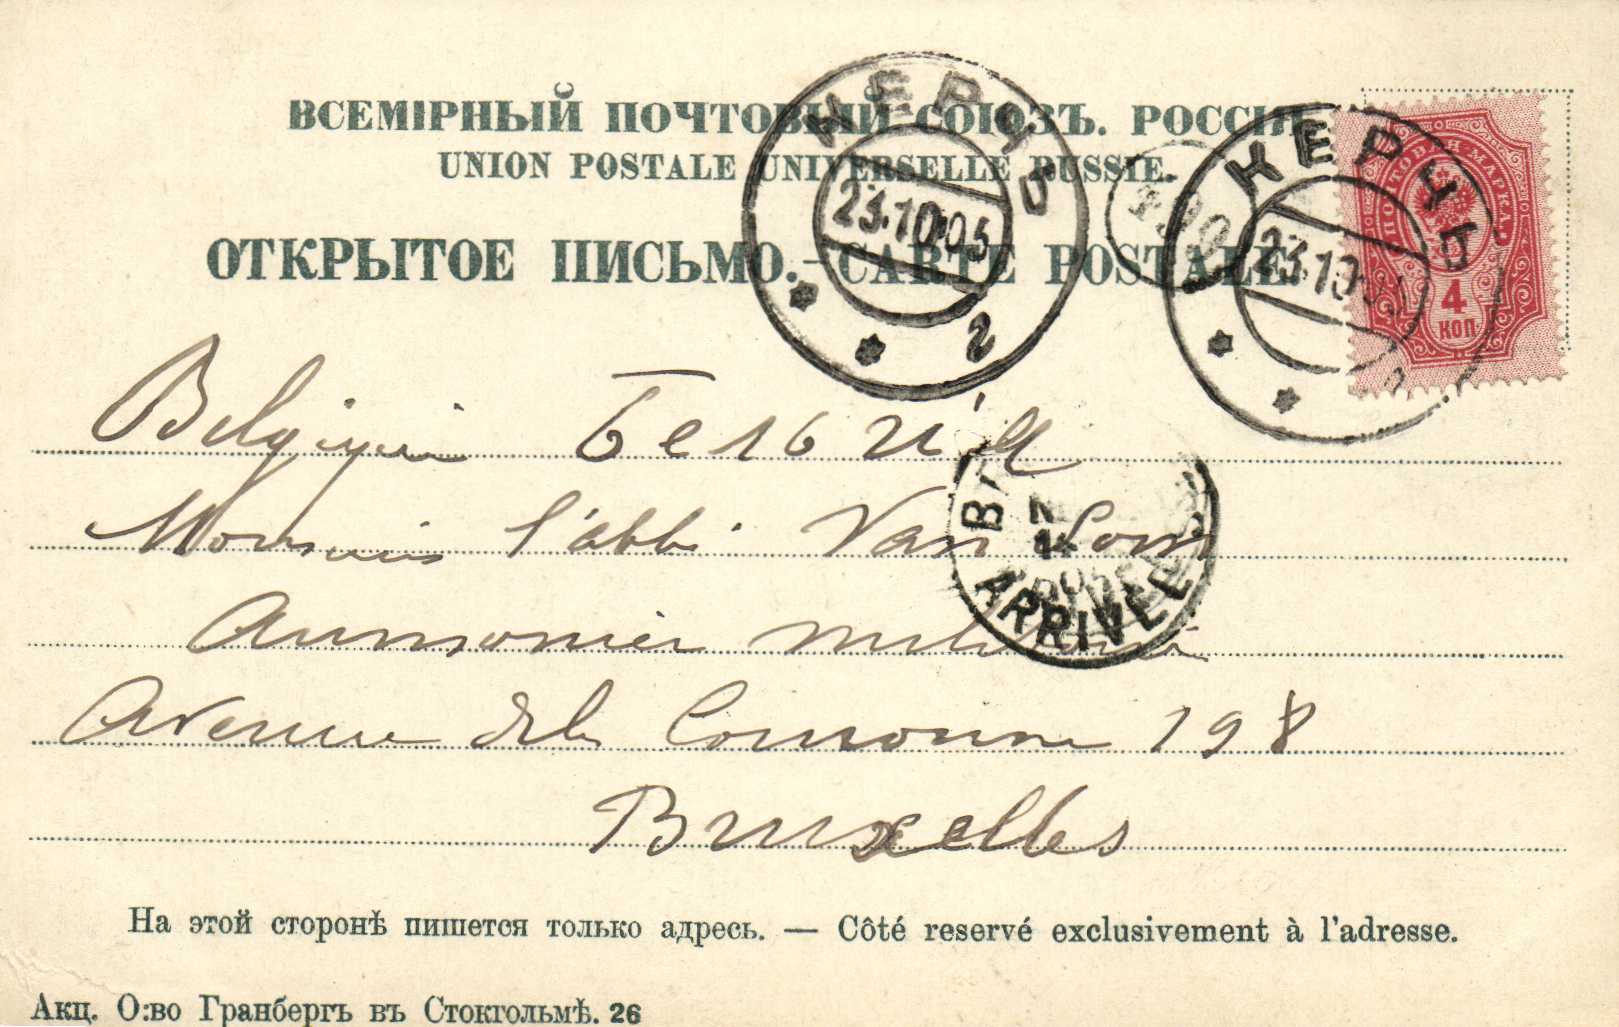 ВСЕМІРНЫЙ ПОЧТОВЫЙ СОЮЗЪ. РОССІЯ
UNION POSTALE UNIVERSELLE RUSSIE.
ОТКРЫТОЕ ПИСЬМО. — CARTE POSTALE
КЕРЧЬ
23.10.05
2
КЕРЧЬ
23.10.05
ПОЧТОВАЯ МАРКА.
4
КОП.
Belgique Бельгія
Monsieur l'abbé Van
ARRIVEE
Aumonier militaire
Avenue de la Couronne 198
Bruxelles
На этой сторонѣ пишется только адресь. — Côté reservé exclusivement à l'adresse.
Акц. О:во Гранбергъ въ Стокгольмѣ. 26